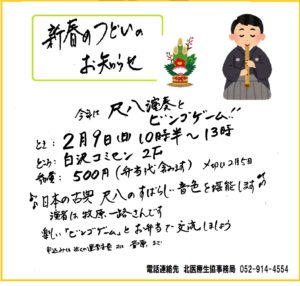 新春のつどいの
お知らせ
今年は 尺八演奏と
ビンゴゲーム!!
とき：2月9日(日) 10時半～13時
ところ：白沢コミセン 2F
参加費：500円(弁当代含みます) 〆切り2月5日
日本の古典 尺八のすばらしい音色を堪能します
演者は牧原一路さんです
楽しい「ビンゴゲーム」とお弁当で交流しましょう
申込みは 運営委員 菅原 まで
電話連絡先 北医療生協事務局 052-914-4554